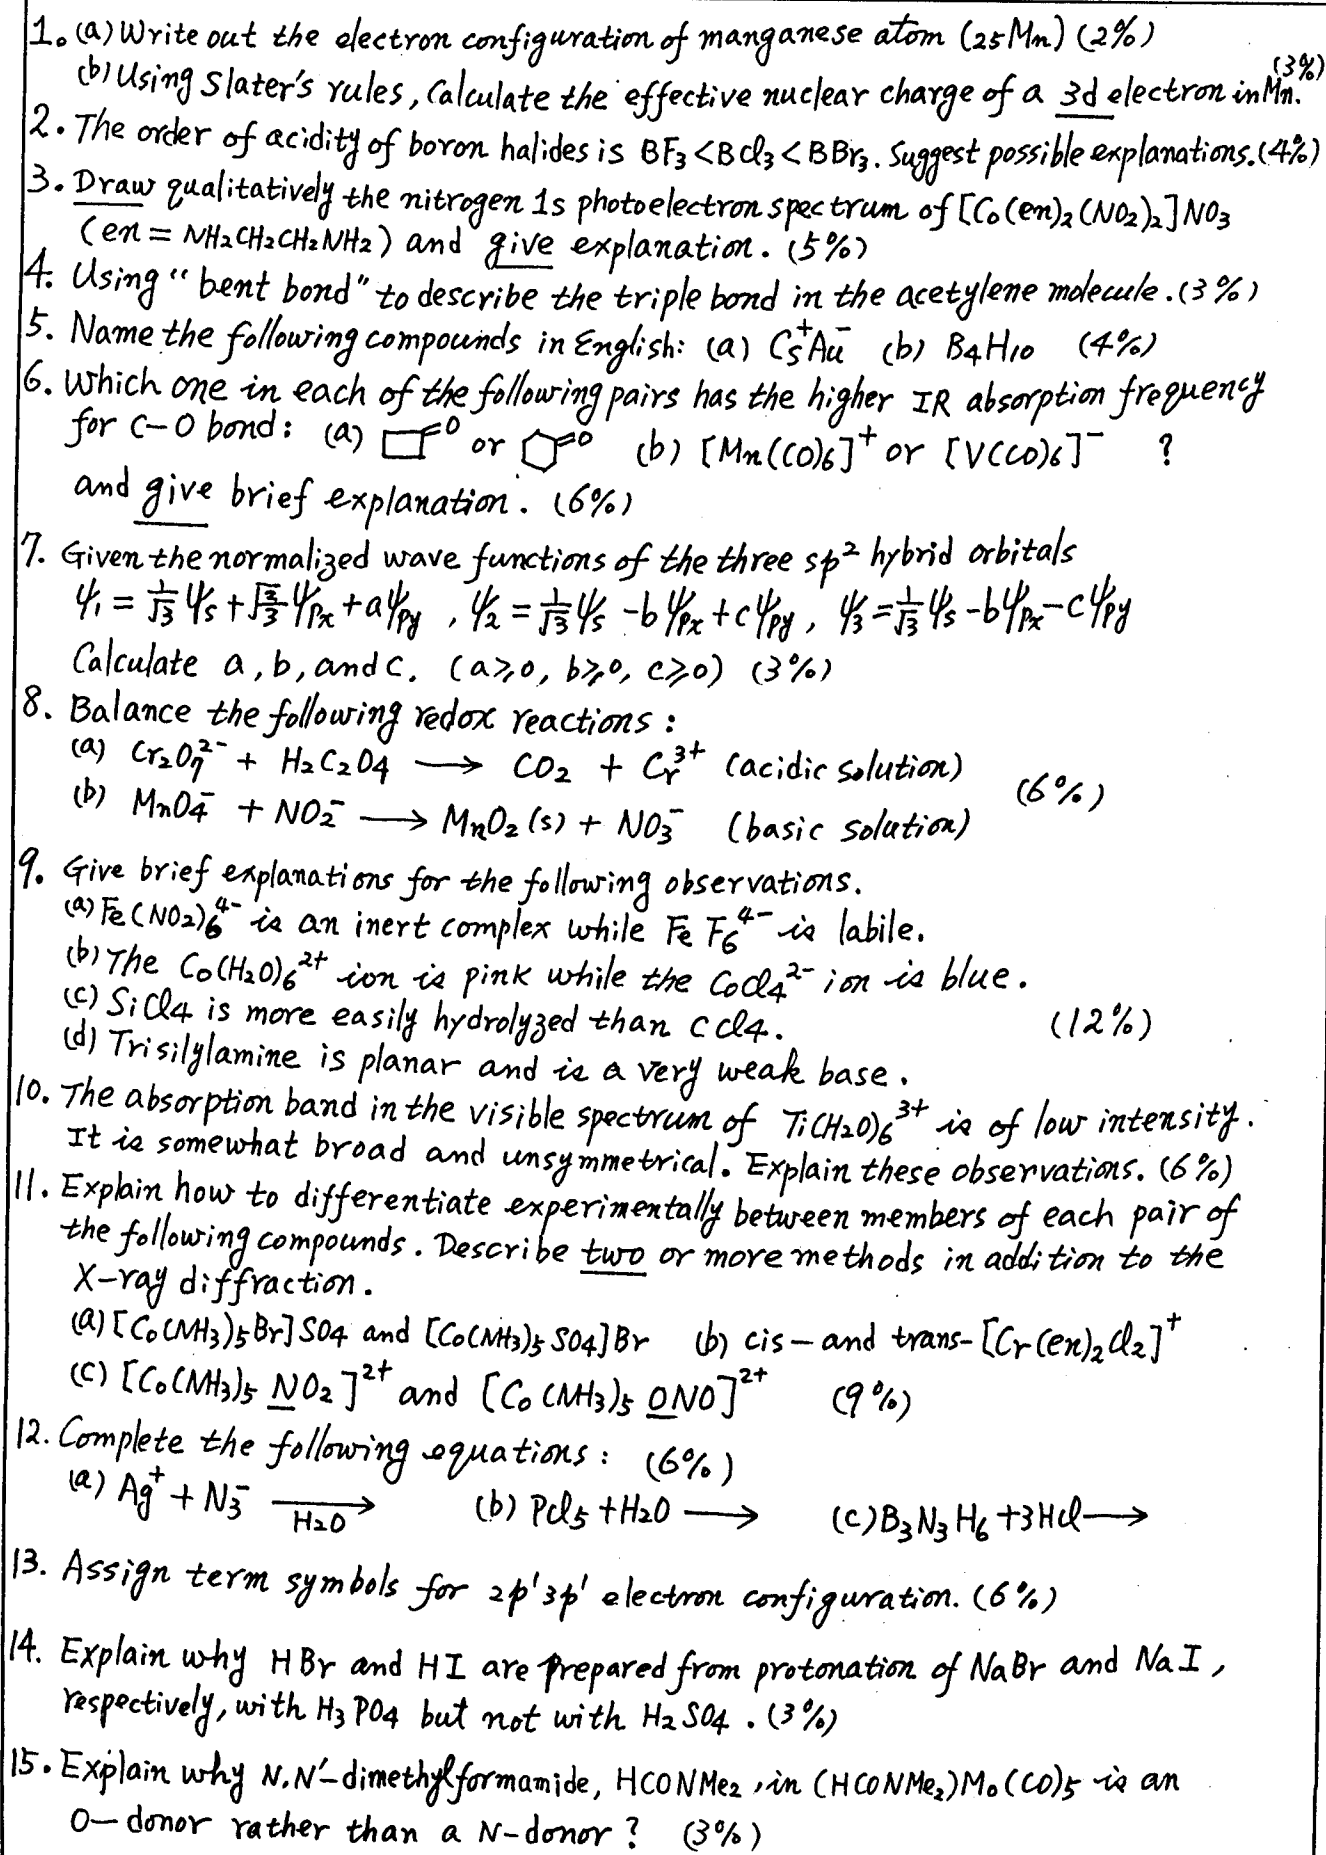 1. (a) Write out the electron configuration of manganese atom (₂₅Mn) (2%)
(b) Using Slater's rules, Calculate the effective nuclear charge of a 3d electron in Mn. (3%)
2. The order of acidity of boron halides is BF₃ < BCl₃ < BBr₃. Suggest possible explanations. (4%)
3. Draw qualitatively the nitrogen 1s photoelectron spectrum of [Co(en)₂(NO₂)₂]NO₃
(en = NH₂CH₂CH₂NH₂) and give explanation. (5%)
4. Using "bent bond" to describe the triple bond in the acetylene molecule. (3%)
5. Name the following compounds in English: (a) Cs⁺Au⁻ (b) B₄H₁₀ (4%)
6. Which one in each of the following pairs has the higher IR absorption frequency
for C-O bond: (a) =O or =O (b) [Mn(CO)₆]⁺ or [V(CO)₆]⁻ ?
and give brief explanation. (6%)
7. Given the normalized wave functions of the three sp² hybrid orbitals
ψ₁ = 1/√3 ψs + √(2/3) ψpx + aψpy , ψ₂ = 1/√3 ψs - bψpx + cψpy , ψ₃ = 1/√3 ψs - bψpx - cψpy
Calculate a, b, and c. (a≥0, b≥0, c≥0) (3%)
8. Balance the following redox reactions:
(a) Cr₂O₇²⁻ + H₂C₂O₄ → CO₂ + Cr³⁺ (acidic solution)
(6%)
(b) MnO₄⁻ + NO₂⁻ → MnO₂(s) + NO₃⁻ (basic solution)
9. Give brief explanations for the following observations.
(a) Fe(NO₂)₆⁴⁻ is an inert complex while FeF₆⁴⁻ is labile.
(b) The Co(H₂O)₆²⁺ ion is pink while the CoCl₄²⁻ ion is blue.
(c) SiCl₄ is more easily hydrolyzed than CCl₄. (12%)
(d) Trisilylamine is planar and is a very weak base.
10. The absorption band in the visible spectrum of Ti(H₂O)₆³⁺ is of low intensity.
It is somewhat broad and unsymmetrical. Explain these observations. (6%)
11. Explain how to differentiate experimentally between members of each pair of
the following compounds. Describe two or more methods in addition to the
X-ray diffraction.
(a) [Co(NH₃)₅Br]SO₄ and [Co(NH₃)₅SO₄]Br (b) cis- and trans-[Cr(en)₂Cl₂]⁺
(c) [Co(NH₃)₅NO₂]²⁺ and [Co(NH₃)₅ONO]²⁺ (9%)
12. Complete the following equations: (6%)
(a) Ag⁺ + N₃⁻ → H₂O (b) PCl₅ + H₂O → (c) B₃N₃H₆ + 3HCl →
13. Assign term symbols for 2p¹3p¹ electron configuration. (6%)
14. Explain why HBr and HI are prepared from protonation of NaBr and NaI,
respectively, with H₃PO₄ but not with H₂SO₄. (3%)
15. Explain why N,N'-dimethylformamide, HCONMe₂, in (HCONMe₂)Mo(CO)₅ is an
O-donor rather than a N-donor? (3%)